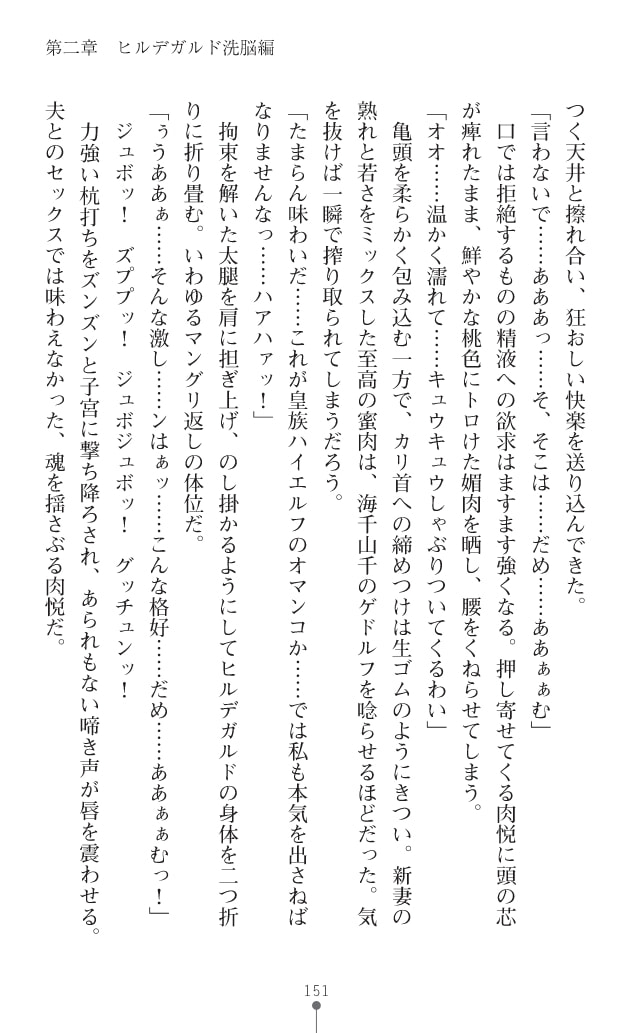 第二章　ヒルデガルド洗脳編
つく天井と擦れ合い、狂おしい快楽を送り込んできた。
「言わないで……あああっ……そ、そこは……だめ……ああぁぁむ」
口では拒絶するものの精液への欲求はますます強くなる。押し寄せてくる肉悦に頭の芯
が痺れたまま、鮮やかな桃色にトロけた媚肉を晒し、腰をくねらせてしまう。
「オオ……温かく濡れて……キュウキュウしゃぶりついてくるわい」
亀頭を柔らかく包み込む一方で、カリ首への締めつけは生ゴムのようにきつい。新妻の
熟れと若さをミックスした至高の蜜肉は、海千山千のゲドルフを唸らせるほどだった。気
を抜けば一瞬で搾り取られてしまうだろう。
「たまらん味わいだ……これが皇族ハイエルフのオマンコか……では私も本気を出さねば
なりませんなっ……ハアハァッ！」
拘束を解いた太腿を肩に担ぎ上げ、のし掛かるようにしてヒルデガルドの身体を二つ折
りに折り畳む。いわゆるマングリ返しの体位だ。
「ぅうああぁ……そんな激し……ンはぁッ……こんな格好……だめ……ああぁぁむっ！」
ジュボッ！　ズププッ！　ジュボジュボッ！　グッチュンッ！
力強い杭打ちをズンズンと子宮に撃ち降ろされ、あられもない啼き声が唇を震わせる。
夫とのセックスでは味わえなかった、魂を揺さぶる肉悦だ。
151